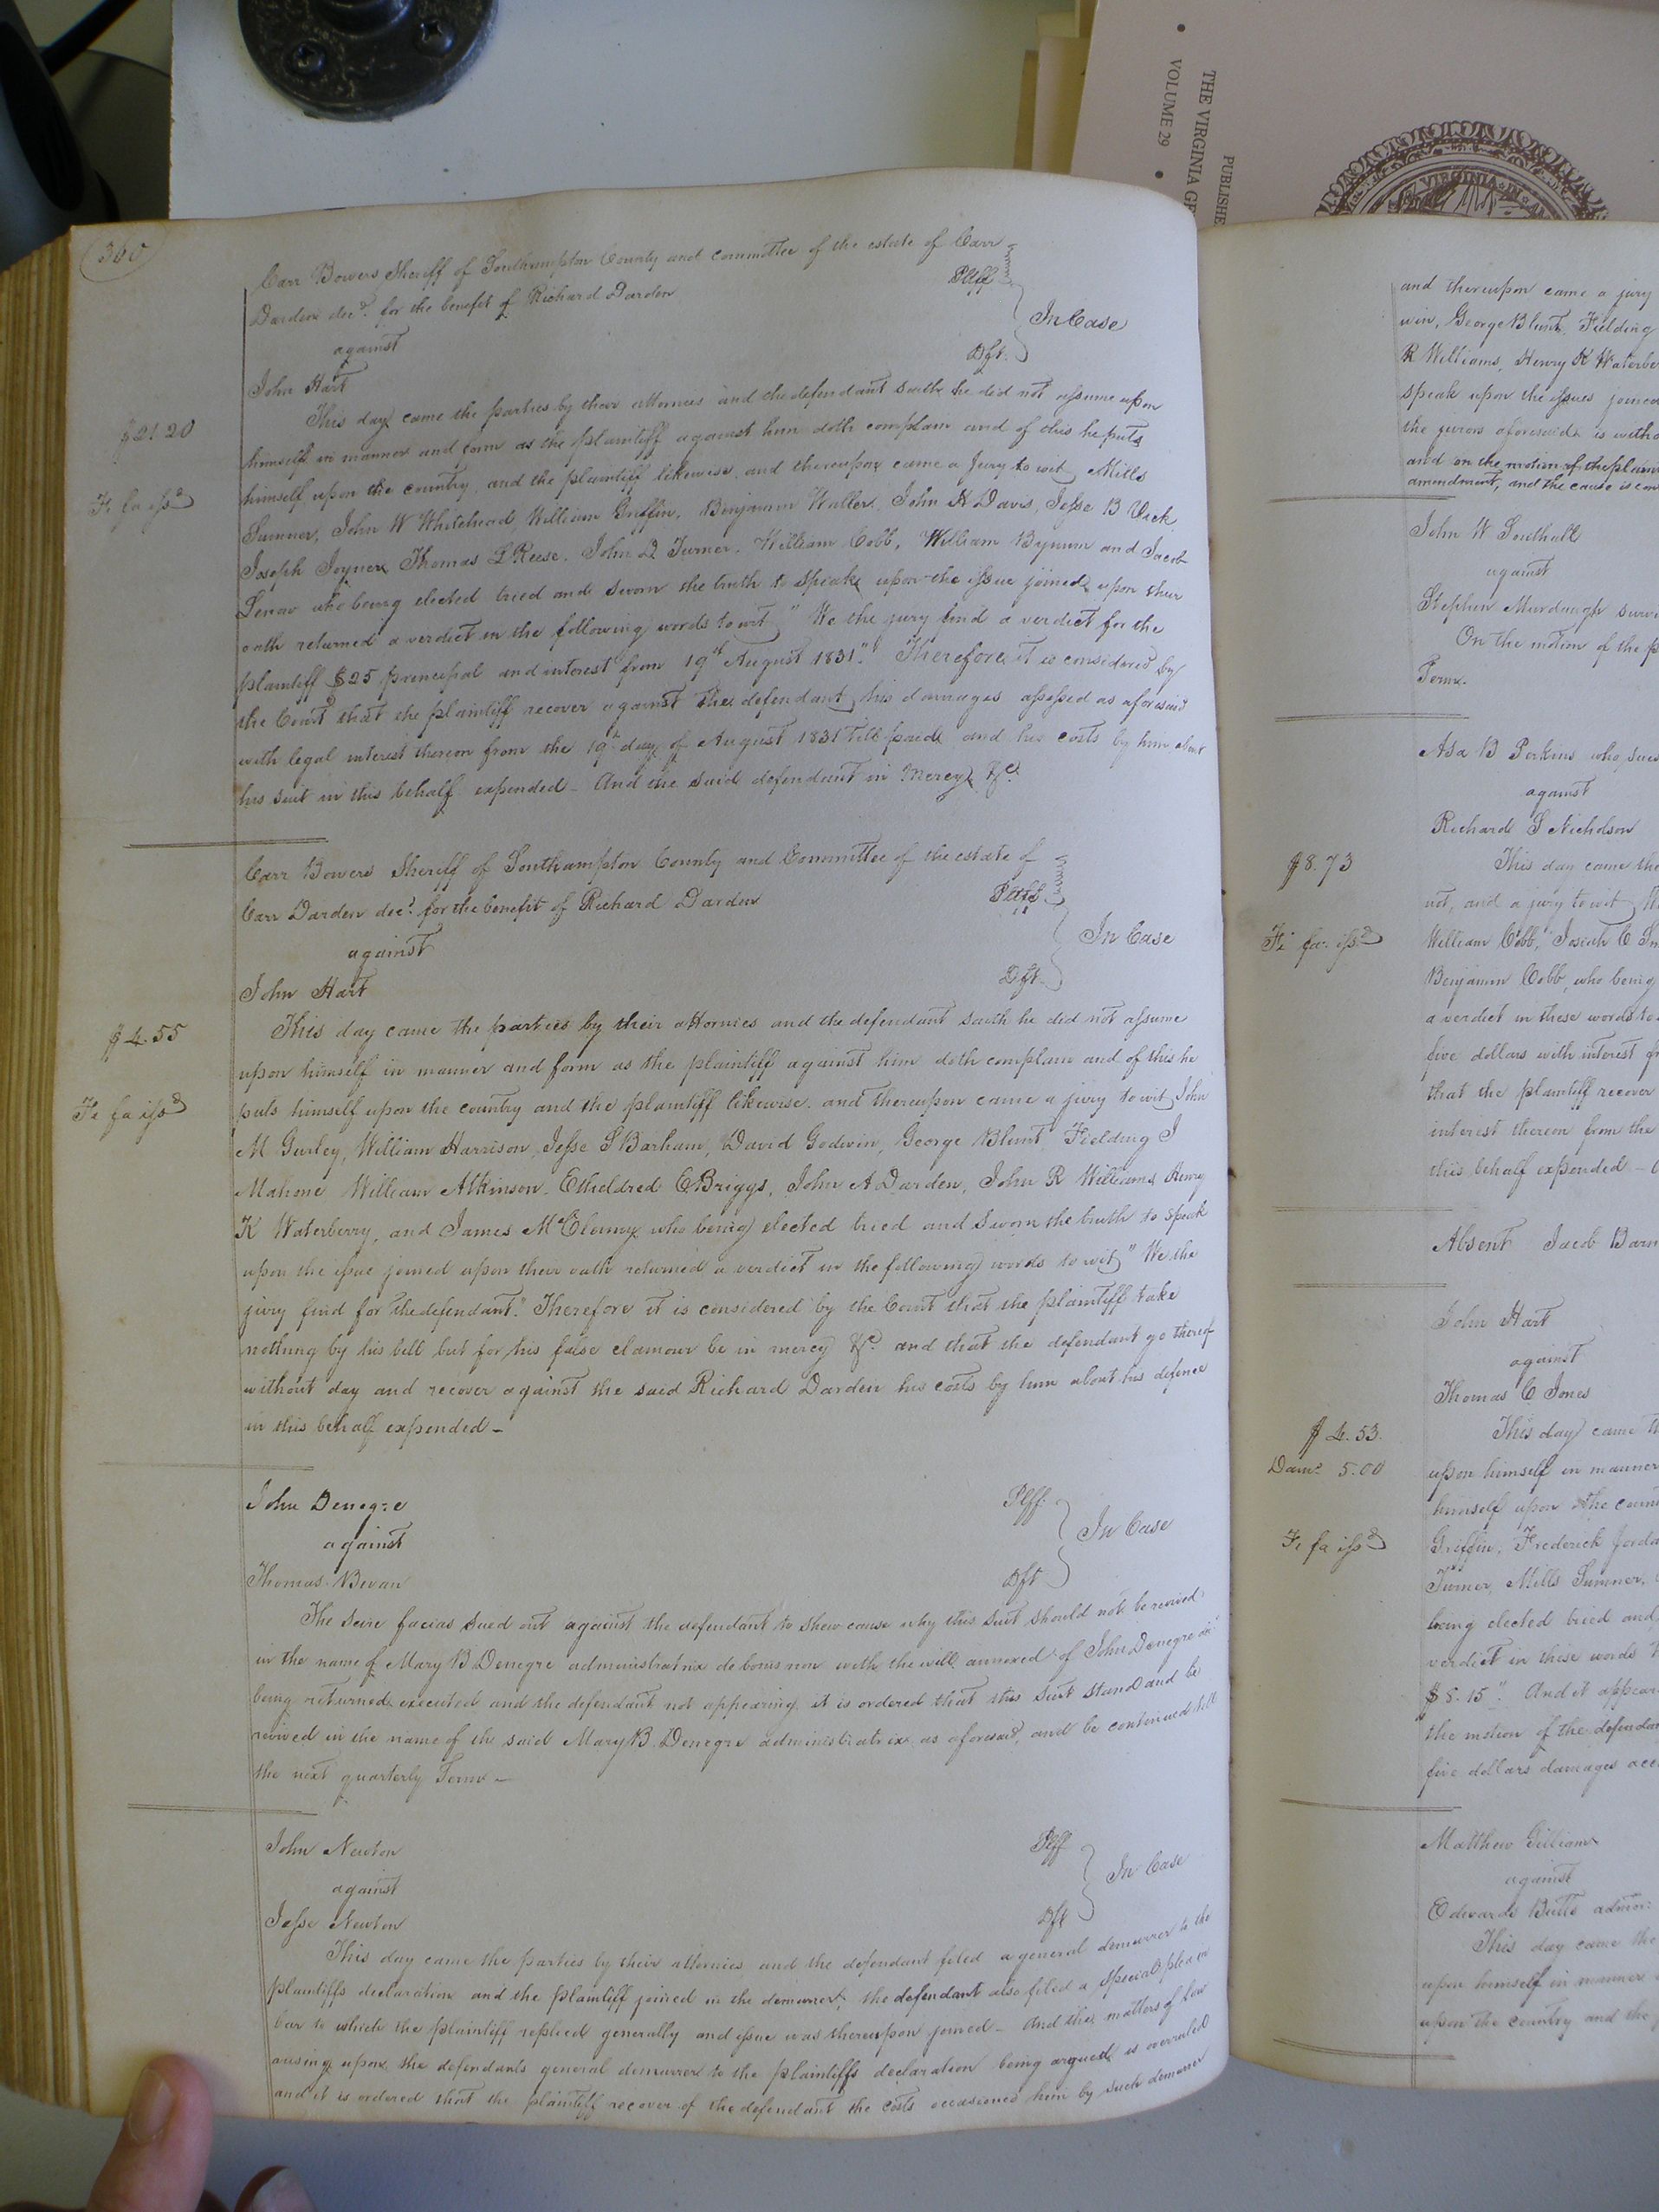 THE VIRGINIA GE
VOLUME 29
PUBLISHE
VIRGINIA IN A
360
Carr Bowers Sheriff of Southampton County and committee of the estate of Carr
Darden decd. for the benefit of Richard Darden Plff
against In Case
John Hart Dft.
$21.20
Fi fa issd
This day came the parties by their attornies and the defendant saith he did not assume upon
himself in manner and form as the plaintiff against him doth complain and of this he puts
himself upon the country, and the plaintiff likewise, and thereupon came a Jury to wit, Mills
Sumner, John W Whitehead William Griffin, Benjamin Waller, John H Davis, Jesse B Vick
Joseph Joyner, Thomas L Reese, John D Turner, William Cobb, William Bynum and Jacob
Lenow who being elected tried and sworn the truth to speak upon the issue joined, upon their
oath returned a verdict in the following words to wit, "We the jury find a verdict for the
plaintiff $25 principal and interest from 19th August 1831." Therefore it is considered by
the Court that the plaintiff recover against the defendant, his damages assessed as aforesaid
with legal interest thereon from the 19th day of August 1831 till paid, and his costs by him about
his suit in this behalf expended – And the said defendant in Mercy &c.
Carr Bowers Sheriff of Southampton County and Committee of the estate of
Carr Darden decd. for the benefit of Richard Darden Pltff
against In Case
John Hart Dft.
$4.55
Fi fa issd
This day came the parties by their attornies and the defendant saith he did not assume
upon himself in manner and form as the plaintiff against him doth complain and of this he
puts himself upon the country and the plaintiff likewise, and thereupon came a jury to wit, John
M Gurley, William Harrison, Jesse S Barham, David Godwin, George Blunt, Fielding J
Mahone William Atkinson, Etheldred E Briggs, John A Darden, John R Williams, Henry
K Waterberry, and James McClemy who being elected tried and sworn the truth to speak
upon the issue joined upon their oath returned a verdict in the following words to wit, "We the
jury find for the defendant." Therefore it is considered by the Court that the plaintiff take
nothing by his bill but for his false clamour be in mercy &c. and that the defendant go thereof
without day and recover against the said Richard Darden his costs by him about his defence
in this behalf expended –
John Denegre Plff.
against In Case
Thomas Bevan Dft
The scire facias sued out against the defendant to shew cause why this suit should not be revived
in the name of Mary B Denegre administratrix de bonis non with the will annexed of John Denegre decd
being returned executed and the defendant not appearing, it is ordered that this suit stand and be
revived in the name of the said Mary B. Denegre administratrix as aforesaid, and be continued till
the next quarterly Term –
John Newton Plff
against In Case
Jesse Newton Dft
This day came the parties by their attornies and the defendant filed a general demurrer to the
plaintiffs declaration and the plaintiff joined in the demurrer; the defendant also filed a special plea in
bar to which the plaintiff replied generally and issue was thereupon joined – And the matters of law
arising upon the defendants general demurrer to the plaintiffs declaration being argued is overruled
and it is ordered that the plaintiff recover of the defendant the costs occasioned him by such demurrer
and thereupon came a jury
win, George Blunt, Fielding
R Williams, Henry K Waterbe
speak upon the issues joined
the jurors aforesaid is withd
and on the motion of the plain
amendment, and the cause is con
John W Southall
against
Stephen Murdaugh surv
On the motion of the p
Term.
Asa B Perkins who sues
against
Richard S Nicholson
$8.73
Fi fa issd
This day came the
not, and a jury to wit,
William Cobb, Josiah C
Benjamin Cobb, who being
a verdict in these words to
five dollars with interest fr
that the plaintiff recover
interest thereon from the
this behalf expended –
Absent Jacob Barn
John Hart
against
Thomas C Jones
$4.53.
Dams 5.00
Fi fa issd
This day came th
upon himself in manner
himself upon the coun
Griffin, Frederick Jorda
Turner, Mills Sumner,
being elected tried and
verdict in these words
$8.15". And it appear
the motion of the defendan
five dollars damages acc
Matthew Gilliam
against
Edwards Butts admor.
This day came the
upon himself in manner
upon the country and the